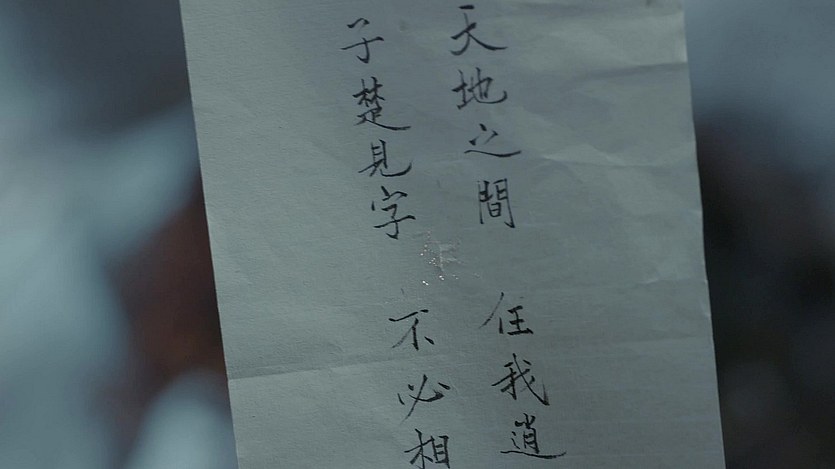 天地之間 任我逍
子楚見字 不必相